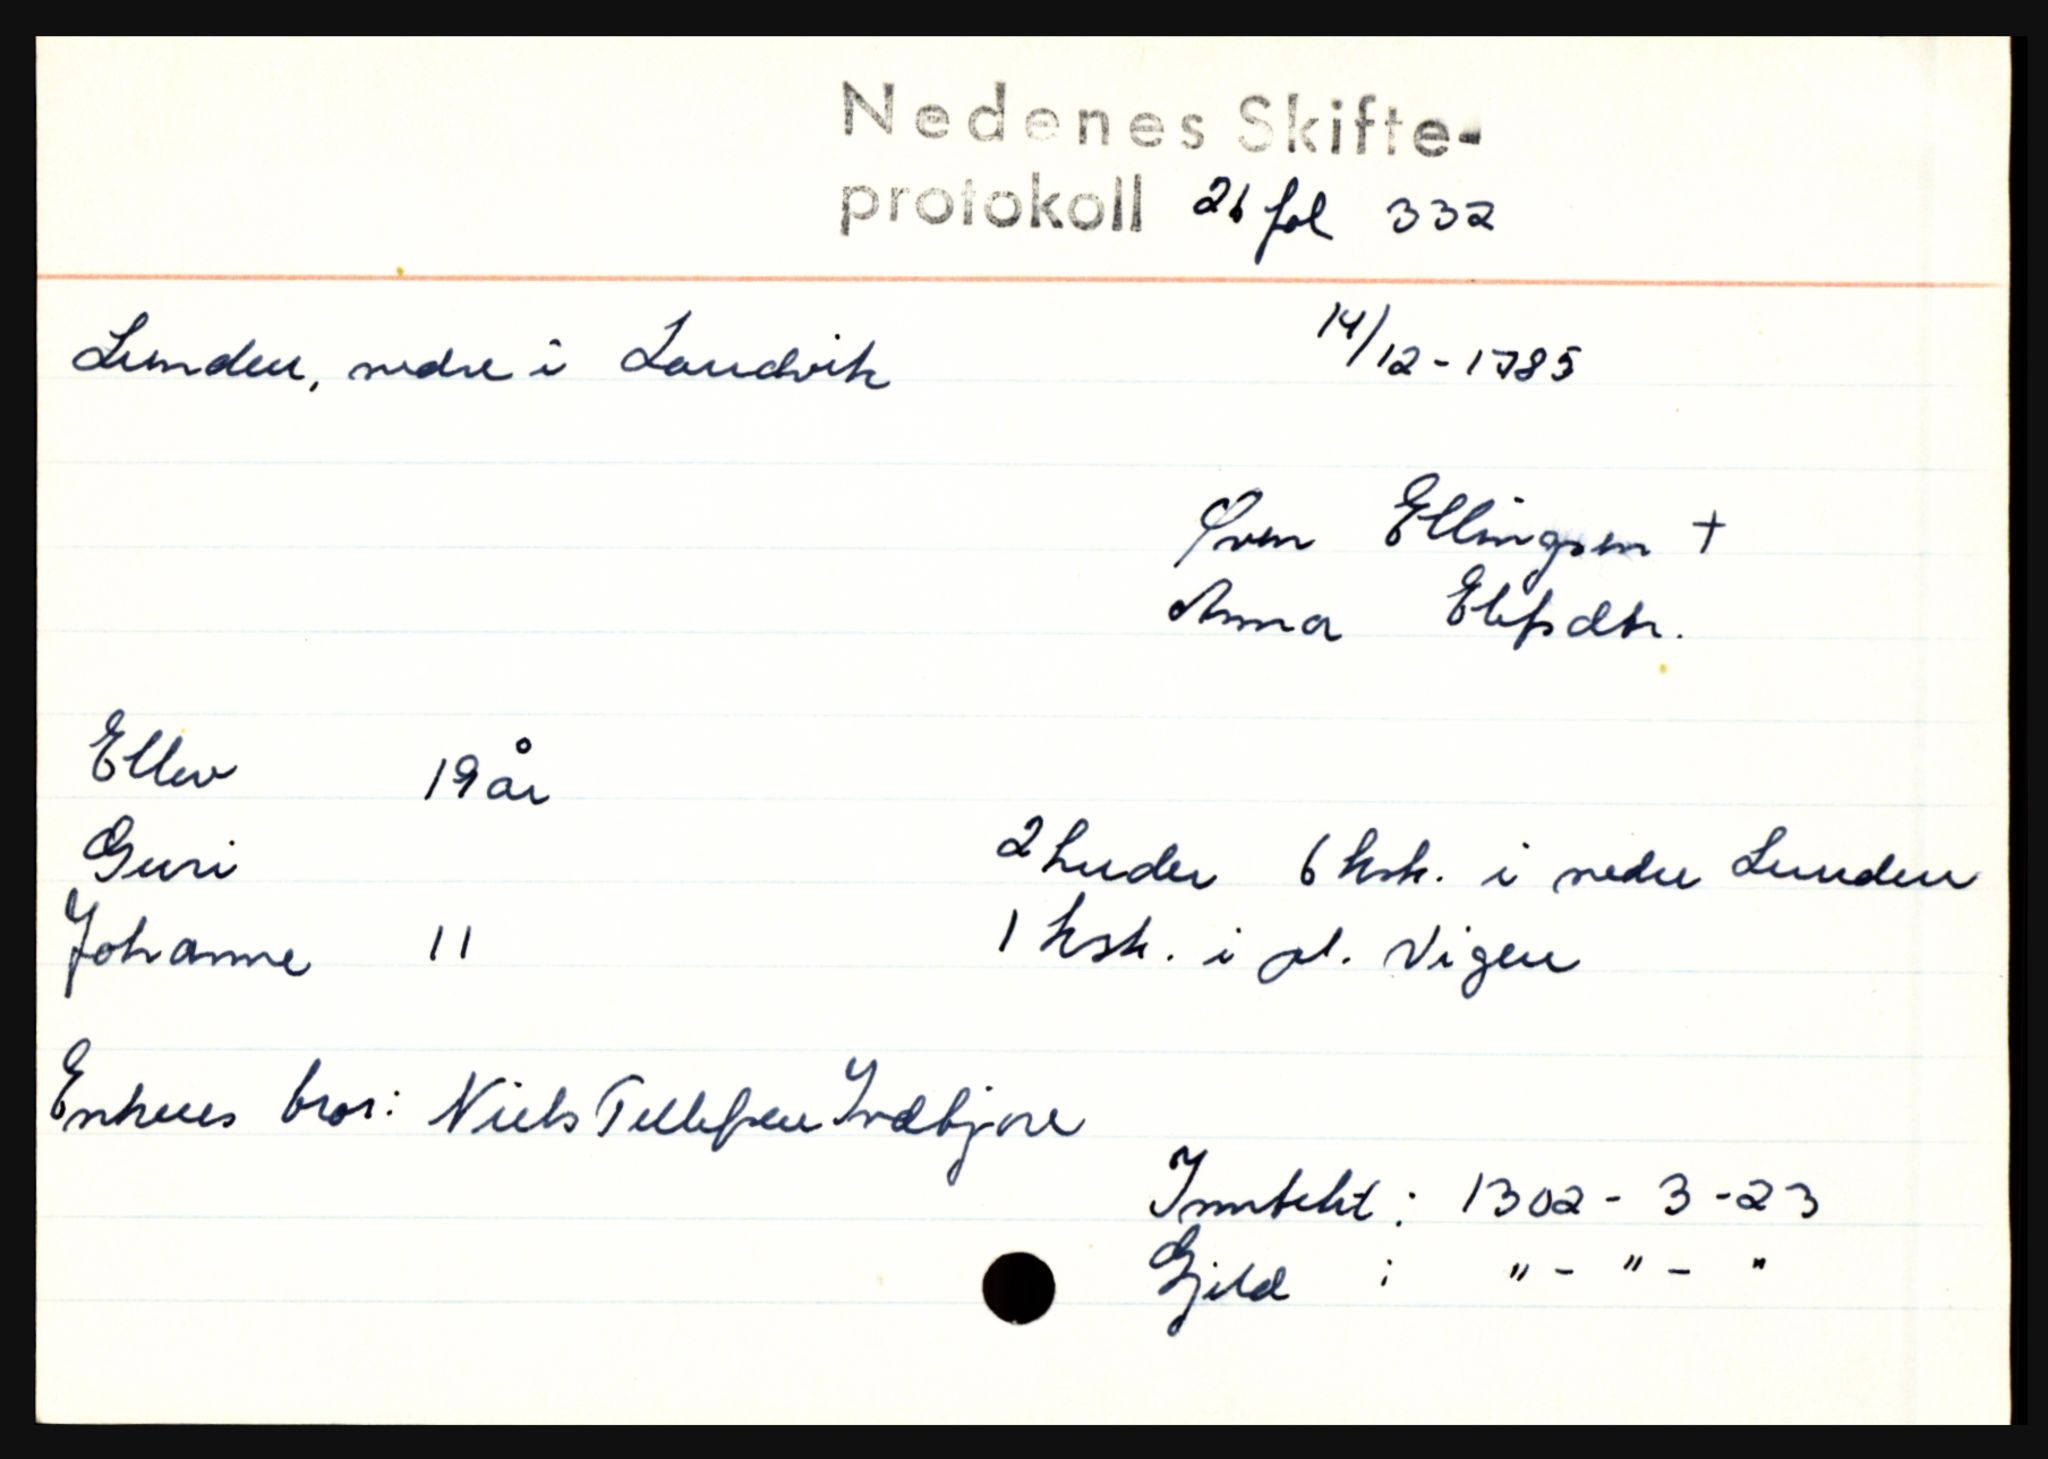 Nedenes Skifte-
protokoll 26 fol 332
Lunden, nedre i Landvik 14/12-1785
Sven Ellingsen +
Anna Elefsdtr.
Ellev 19 år
Guri 2 huder 6 ksk. i nedre Lunden
Johanne 11 1 ksk. i pl. Vigen
Enkens bror: Niels Tellefsen Indbjore
Inntekt: 1302 - 3 - 23
Gjeld : " - " - "